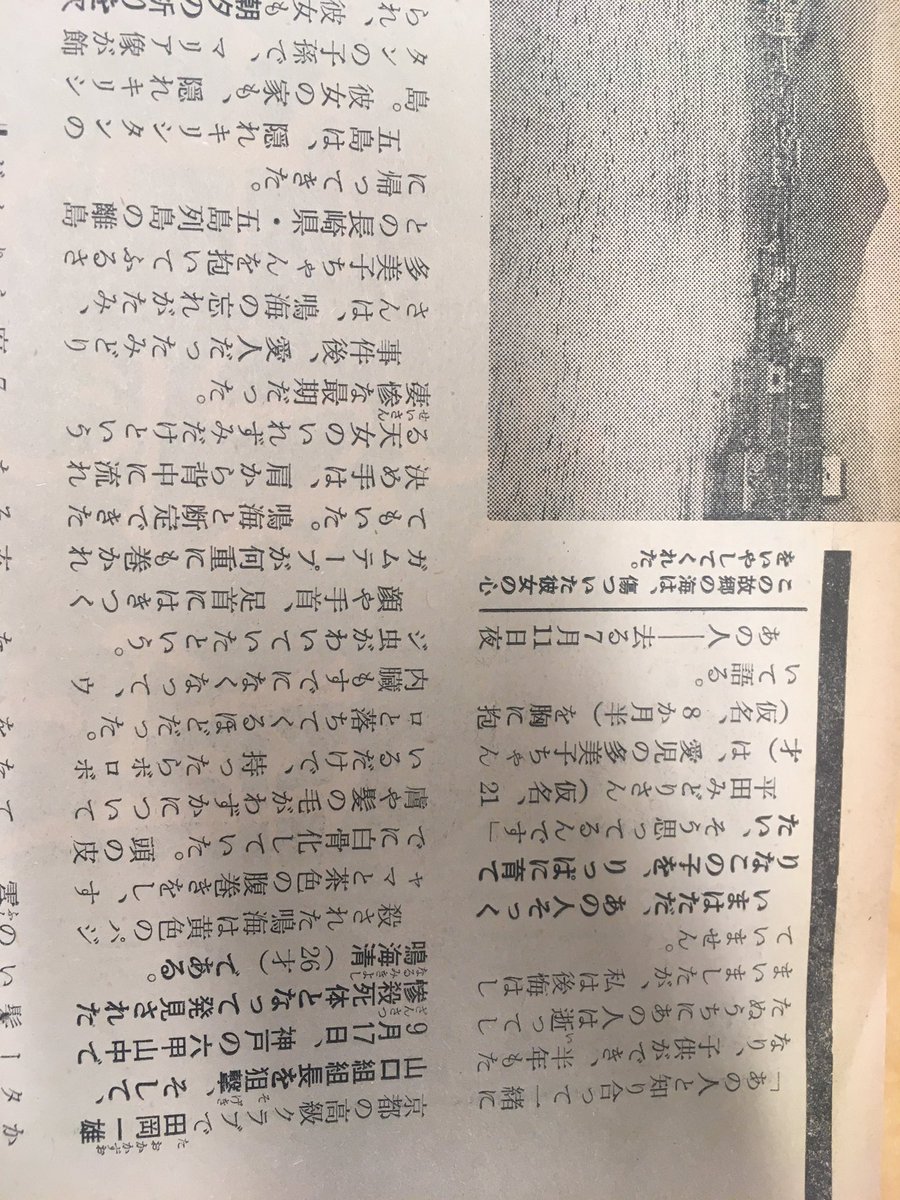 「あの人と知り合って一緒に
なり、子供ができ、半年もた
い
たぬうちにあの人は逝ってし
まいましたが、私は後悔はし
ていません。
いまはただ、あの人そっく
りなこの子を、りっぱに育て
たい、そう思ってるんです」
平田みどりさん（仮名、21
才）は、愛児の多美子ちゃん
（仮名、8か月半）を胸に抱
いて語る。
あの人――去る7月11日夜
この故郷の海は、傷ついた彼女の心
をいやしてくれた。
たおかかずお
京都の高級クラブで田岡一雄
そげき
山口組組長を狙撃、そして、
9月17日、神戸の六甲山中で
ざんさつ
惨殺死体となって発見された
なるみきよし
鳴海清（26才）である。
殺された鳴海は黄色のパジ
ャマと茶色の腹巻きをし、す
でに白骨化していた。頭の皮
膚や髪の毛がわずかについて
いるだけで、持ったらボロボ
ロと落ちてくるほどだった。
内臓もすでになくなって、ウ
ジ虫がわいていたという。
顔や手首、足首にはきつく
ガムテープが何重にも巻かれ
てもいた。鳴海と断定できた
決め手は、肩から背中に流れ
る天女のいれずみだけという
せいさん
凄惨な最期だった。
事件後、愛人だったみどり
さんは、鳴海の忘れがたみ、
多美子ちゃんを抱いてふるさ
との長崎県・五島列島の離島
に帰ってきた。
五島は、隠れキリシタンの
島。彼女の家も、隠れキリシ
タンの子孫で、マリア像が飾
られ、彼女も朝夕の祈りを欠